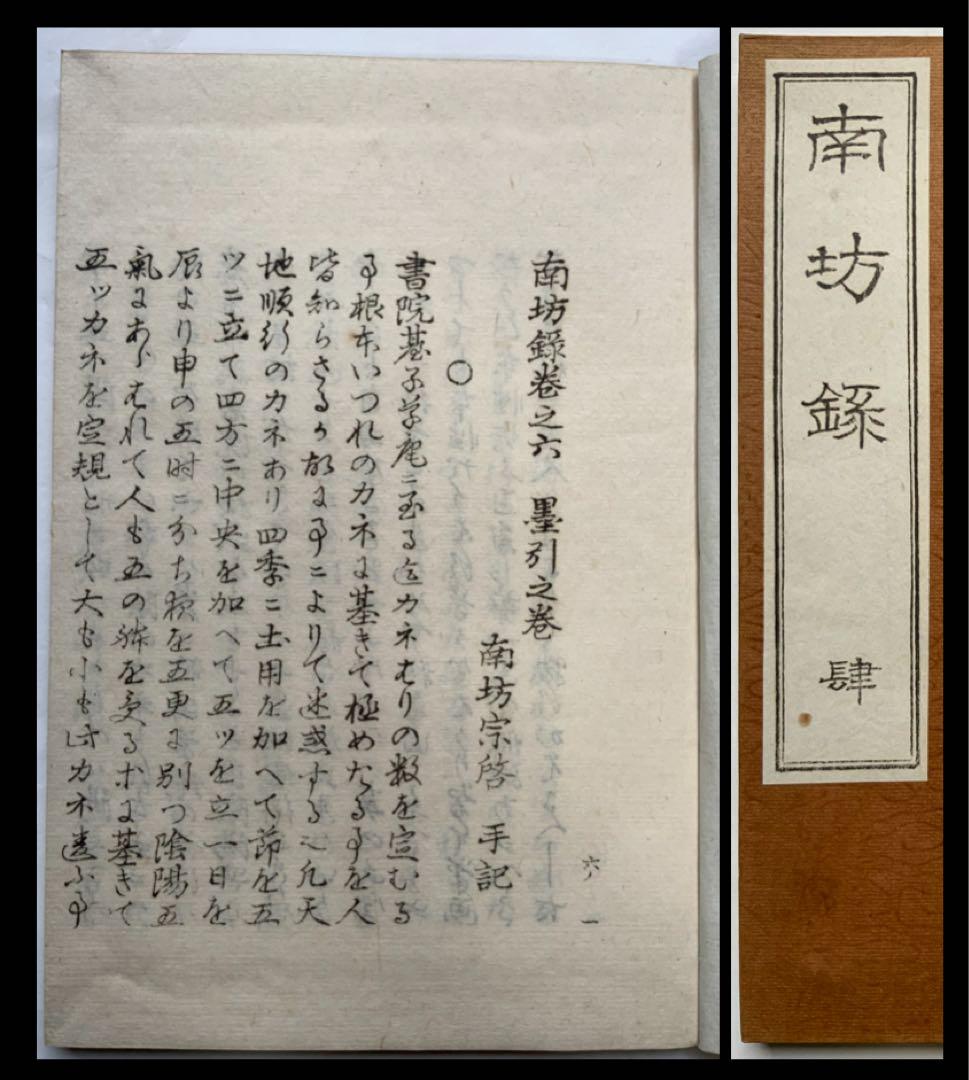 南坊録巻之六　墨引之巻
南坊宗啓　手記
〇
書院台子草庵ニ至る迄カネわりの数を定むる
事根本いつれのカネに基きて極めたる事を人
皆知らさるか故に事ニよりて迷惑する也凡天
地順行のカネあり四季ニ土用を加へて節を五
ツニ立て四方ニ中央を加へて五ツを立一日を
辰より申の五時ニ分ち夜を五更に別つ陰陽五
氣にあらはれて人も五の躰を受るホに基きて
五ツカネを定規として大も小も此カネ遣ふ事
六ノ一
南坊録
肆